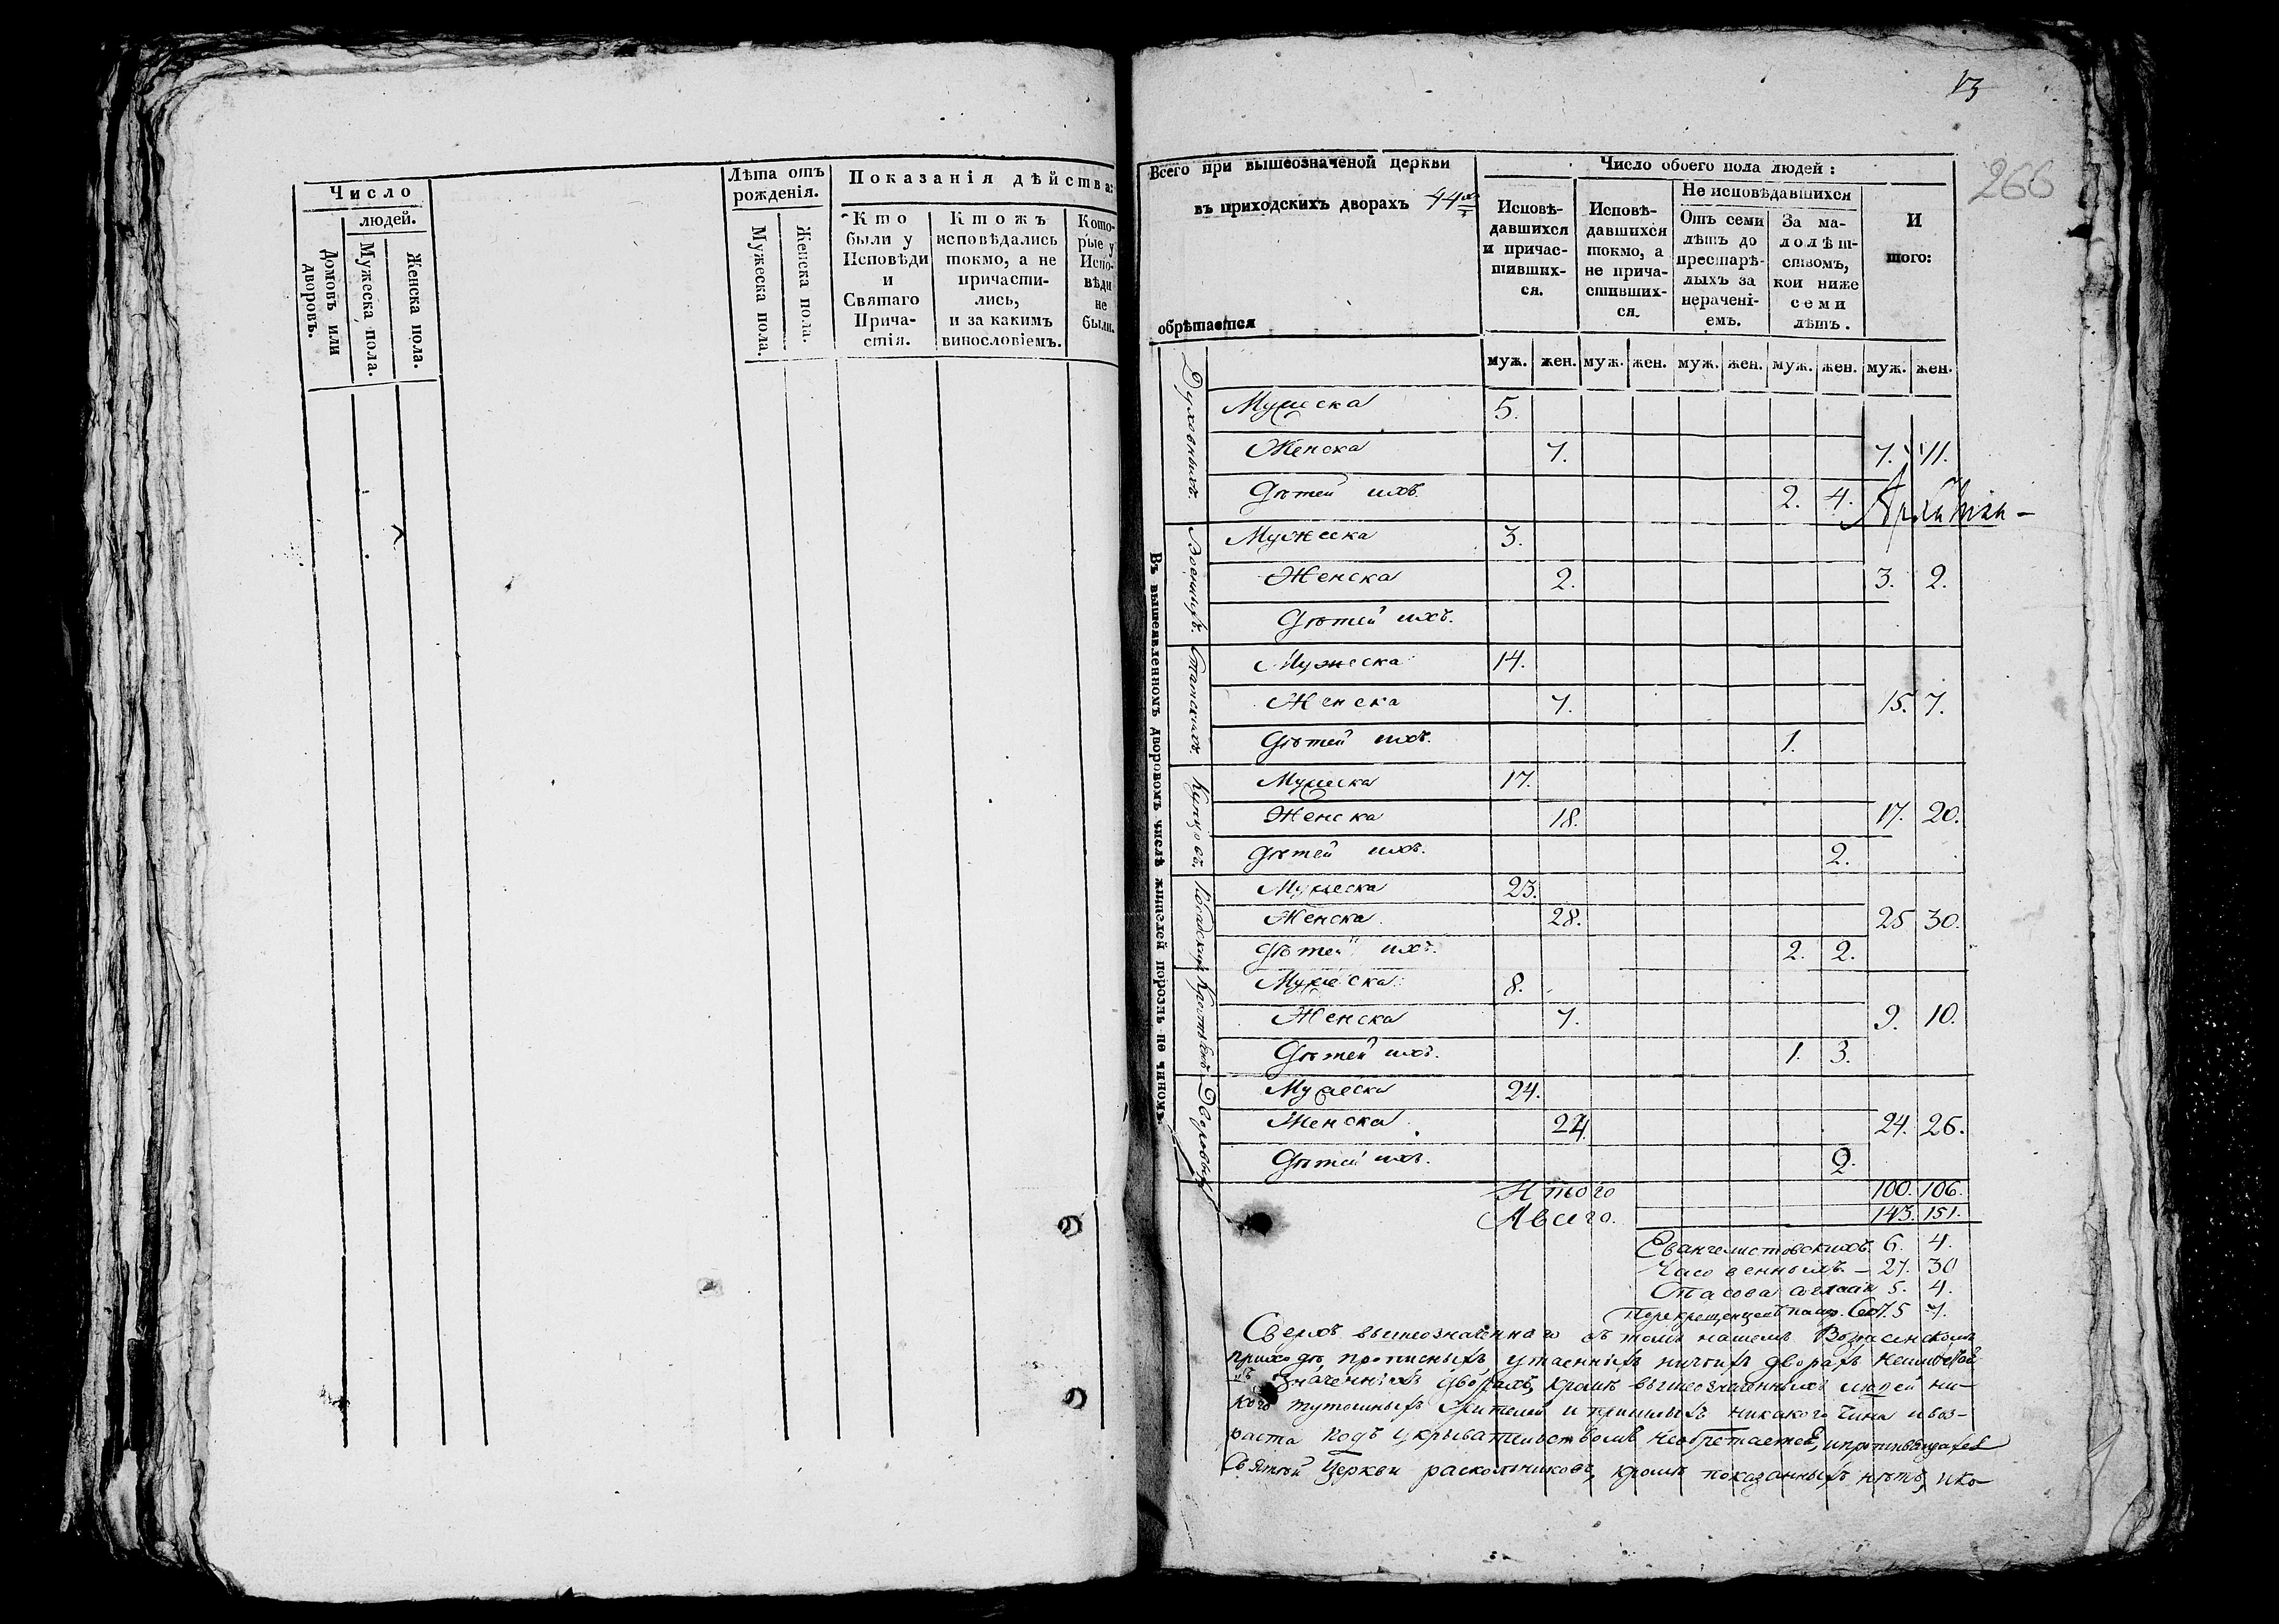 Число
людей.
Домовъ или дворовъ.
Мужеска пола.
Женска пола.
Лѣта отъ рожденія.
Мужеска пола.
Женска пола.
Показанія дѣйства:
Кто были у Исповѣди и Святаго Причастія.
Ктожъ исповѣдались токмо, а не причастились, и за какимъ винословіемъ.
Которые у Исповѣди не были.
13
266
Всего при вышеозначеной церкви
въ приходскихъ дворахъ 44
обрѣтается
Число обоего пола людей:
Исповѣдавшихся и причастившихся.
Исповѣдавшихся токмо, а не причастившихся.
Не исповѣдавшихся
Отъ семи лѣтъ до престарѣлыхъ за нераченіемъ.
За малолѣтствомъ, кои ниже семи лѣтъ.
Итого:
муж. жен. муж. жен. муж. жен. муж. жен. муж. жен.
Въ вышеявленномъ дворовомъ числѣ жителей порознь по чиномъ.
Духовныхъ.
Мужеска 5.
Женска 7. 7. 11.
Дѣтей ихъ. 2. 4.
Военныхъ.
Мужеска 3.
Женска 2. 3. 2.
Дѣтей ихъ.
Статскихъ.
Мужеска 14.
Женска 7. 15. 7.
Дѣтей ихъ. 1.
Купцовъ.
Мужеска 17.
Женска 18. 17. 20.
Дѣтей ихъ. 2.
Мужеска 23.
Женска 28. 25 30.
Дѣтей ихъ. 2. 2.
Мужеска 8.
Женска 7. 9. 10.
Дѣтей ихъ. 1. 3.
Дворовыхъ
Мужеска 24.
Женска 24. 24. 26.
Дѣтей ихъ. 2.
Итого 100. 106.
Авсего. 143. 151.
Евангелистовскихъ. 6. 4.
Часовенныхъ. — 27. 30
Спасова согласія 5. 4.
Перекрещенцевъ 5 7.
Сверхъ вышеозначеннаго въ томъ нашемъ Вознесенскомъ
приходѣ, прописныхъ, утаенныхъ ничьихъ дворахъ
значенныхъ дворахъ, кромѣ вышеозначенныхъ людей ни-
кого тутошныхъ жителей и пришлыхъ никакого чина ивоз-
раста подъ укрывательствомъ необретается,
Святѣй Церкви раскольниковъ, кромѣ показанныхъ нѣтъ, ико-